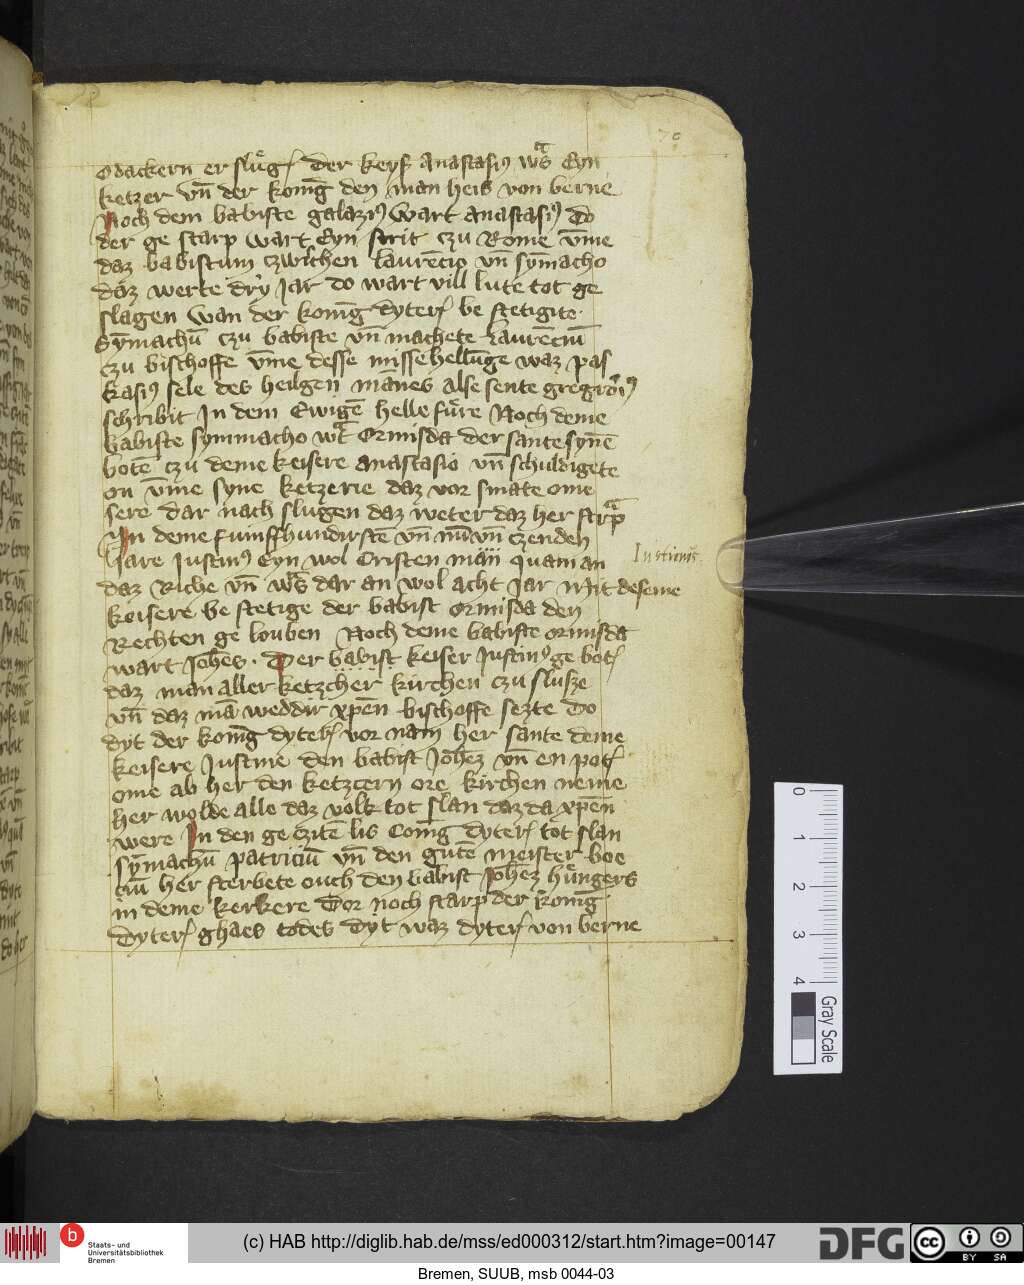 70
odackern er slug der keyß Anastasiꝰ wͣs Eyn
ketzer vn̄ der konīg den man heis von berne
Noch dem babiste galaziꝰ Wart anastasiꝰ Do
der ge starp Wart Eyn strit czu Rome vm̄e
daz babistum czwischen laurēcio vn̄ sym̄acho
daz werte dry Jar do wart vill lute tot ge
slagen Wan der konīg dyterʃ be stetigite
Sym̄achū czu babiste vn̄ machete Laurēciū
czu bischoffe vm̄e desse missehellūge waz pas
kasiꝰ sele des heilgen mānes alse sente gregoriꝰ
schribit In dem Ewigē helle fure Noch deme
babiste symmacho wͣt Ormisda der sante synē
botē czu deme keisere anastasio vn̄ schuldigete
on vm̄e syne ketzerie daz vor smate ome
sere dar nach slugen daz weter daz her starp
In deme fumffhundirste vn̄ nuͦ vn̄ czenden
Jare Justinꝰ Eyn wol Cristen man quam an
daz Riche vn̄ wͣs dar an wol acht Jar Mit deseme
keisere be stetige der babist ormisda den
Rechten ge louben Noch deme babiste ormisda
wart Joh̄es. Der babist keiser Justinꝰ ge botʃ
daz man aller ketzcher kirchen czu slusze
vn̄ daz mā weddir xp̄en bischoffe sezte Do
dyt der konīg dyterʃ vor nam her sante deme
keisere Justine den babist Joh̄ez vn̄ en potʃ
ome ab her den ketzcern ore kirchen neme
her wolde alle daz volk tot slan daz da xp̄en
were In den ge czitē lis Conīg dyterʃ tot slan
sym̄achū patriciū vn̄ den gutē meister boe
ciū her sterbete ouch den babist Joh̄ez hungers
in deme kerkere Dor noch starp der konīg
Dyterʃ ghaes todes Dyt waz dyterʃ von berne
Justinus.
0 1 2 3 4 Gray Scale
b Staats- und
Universitätsbibliothek
Bremen
(c) HAB http://diglib.hab.de/mss/ed000312/start.htm?image=00147
DFG
cc BY SA
Bremen, SUUB, msb 0044-03